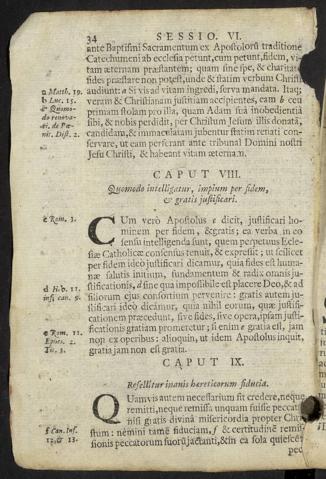 34 SESSIO. VI.
ante Baptismi Sacramentum ex Apostolorū traditione
Catechumeni ab ecclesia petunt, cum petunt, fidem, vi-
tam æternam præstantem; quam sine spe, & charitate
a Matth. 19. fides præstare non potest, unde & statim verbum Christi
b Luc. 15. audiunt: a Si vis ad vitam ingredi, serva mandata. Itaq;
veram & Christianam justitiam accipientes, eam b ceu
primam stolam pro illa, quam Adam sua inobedientiâ
sibi, & nobis perdidit, per Christum Jesum illis donatā,
nit. Dist. 2. candidam, & immaculatam jubentur statim renati con-
servare, ut eam perferant ante tribunal Domini nostri
Jesu Christi, & habeant vitam æternam.
CAPUT VIII.
Quomodo intelligatur, impium per fidem,
& gratis justificari.
e Rom. 3. CUm verò Apostolus e dicit, justificari ho-
minem per fidem, & gratis; ea verba in eo
sensu intelligenda sunt, quem perpetuus Eccle-
siæ Catholicæ consensus tenuit, & expressit; ut scilicet
per fidem ideò justificari dicamur, quia fides est huma-
næ salutis initium, fundamentum & radix omnis ju-
d Heb. 11. stificationis, d sine qua impossibile est placere Deo, & ad
filiorum ejus consortium pervenire: gratis autem ju-
stificari ideò dicamur, quia nihil eorum, quæ justifi-
cationem præcedunt, sive fides, sive opera, ipsam justi-
e Rom. 11. ficationis gratiam promeretur; si enim e gratia est, jam
Ephes. 2. non ex operibus: alioquin, ut idem Apostolus inquit,
Tit. 3. gratia jam non est gratia.
CAPUT IX.
Refellitur inanis hæreticorum fiducia.
QUamvis autem necessarium sit credere, neque
remitti, neque remissa unquam fuisse peccata
nisi gratis divinâ misericordia propter Chri-
f Can. Inf. stum: nemini tamē fiduciam, f & certitudinē remis-
12. & 13. sionis peccatorum suorū jactanti, & in ea sola quiescēti
pec